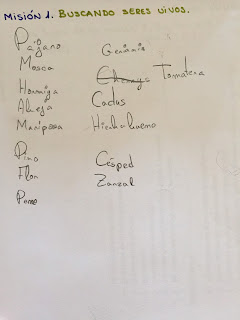 Misión 1. BUSCANDO SERES VIVOS.
Pájaro
Mosca
Hormiga
Abeja
Mariposa
Pino
Flor
Geranio
Tomatera
Cactus
Césped
Zarzal